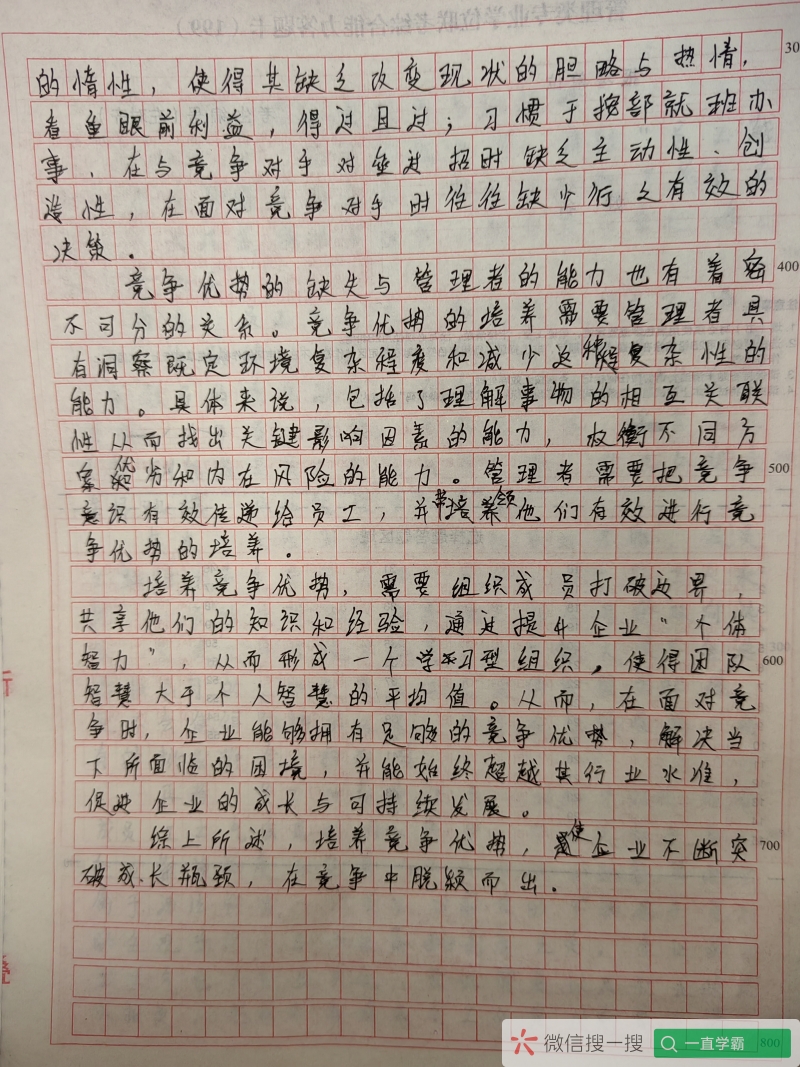 管理类专业学位联考综合能力答题卡（199）
的惰性，使得其缺乏改变现状的胆略与热情，
着重眼前利益，得过且过；习惯于按部就班办
事，在与竞争对手对垒过招时缺乏主动性、创
造性，在面对竞争对手时往往缺少行之有效的
决策。
竞争优势的缺失与管理者的能力也有着密
400
不可分的关系。竞争优势的培养需要管理者具
有洞察既定环境复杂程度和减少这种复杂性的
能力。具体来说，包括了理解事物的相互关联
性从而找出关键影响因素的能力，权衡不同方
案优劣和内在风险的能力。管理者需要把竞争
500
意识有效传递给员工，并带领他们有效进行竞
争优势的培养。
培养竞争优势，需要组织成员打破边界，
共享他们的知识和经验，通过提升企业“个体
智力”，从而形成一个学习型组织，使得团队
600
智慧大于个人智慧的平均值。从而，在面对竞
争时，企业能够拥有足够的竞争优势，解决当
下所面临的困境，并能始终超越其行业水准，
促进企业的成长与可持续发展。
综上所述，培养竞争优势，使企业不断突
700
破成长瓶颈，在竞争中脱颖而出。
微信搜一搜
一直学霸
800